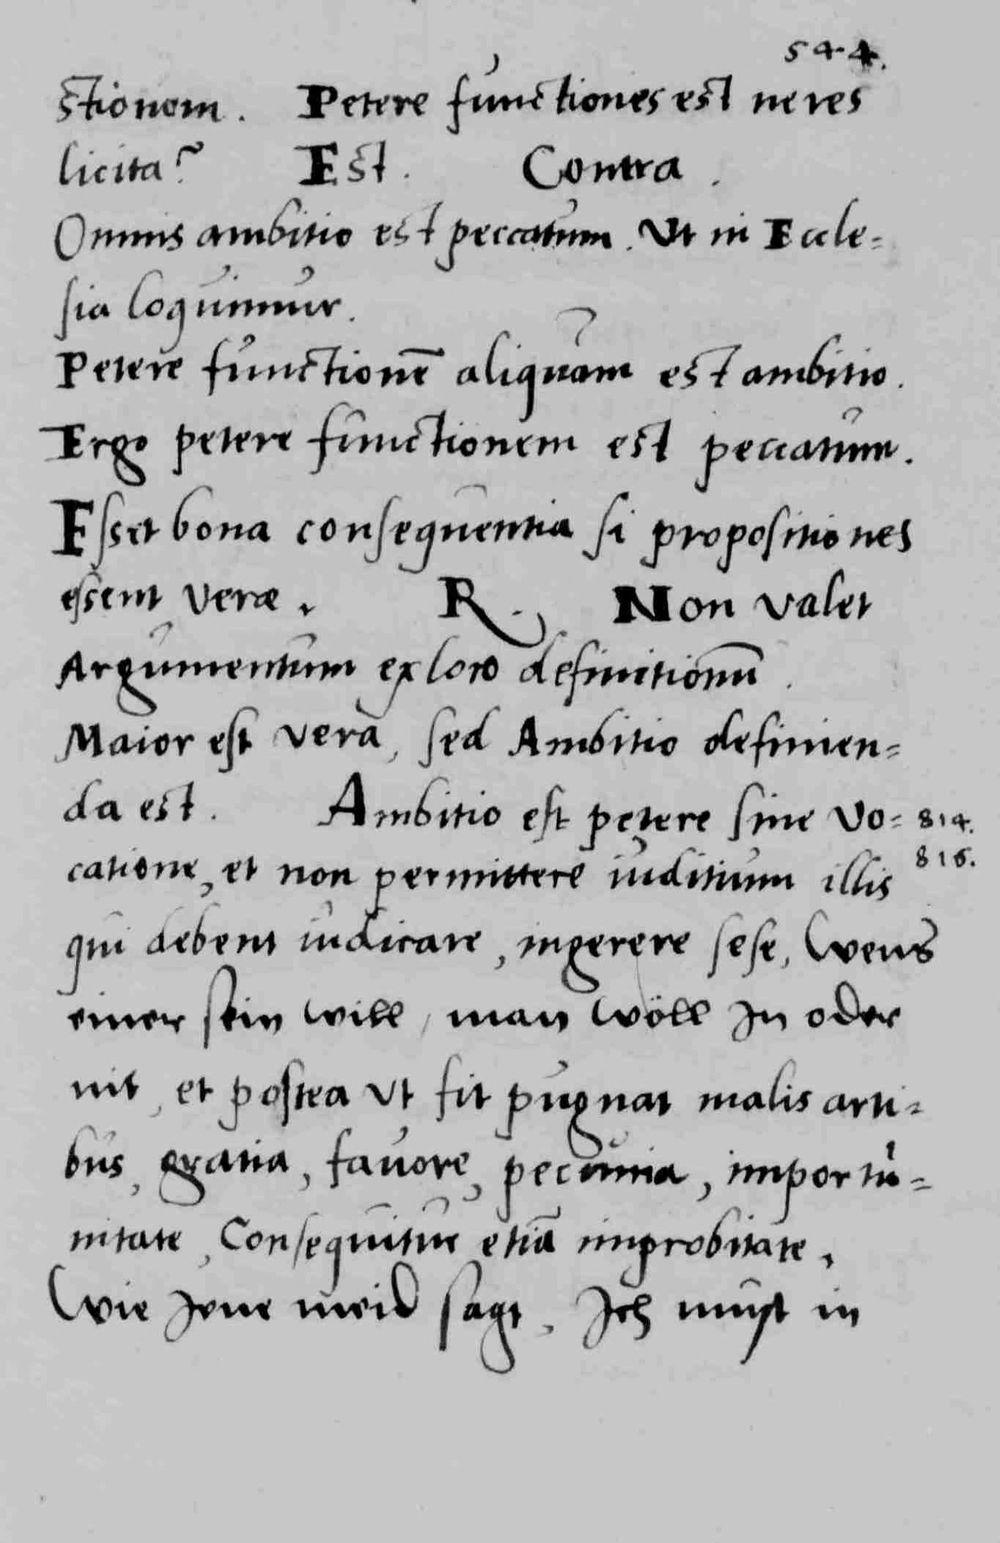 544.
stionem. Petere functiones est ne res
licita? Est. Contra.
Omnis ambitio est peccatum. Ut in Eccle=
sia loquimur.
Petere functionē aliquam est ambitio.
Ergo petere functionem est peccatum.
Esset bona consequentia si propositiones
essent veræ. R. Non valet
Argumentum ex loco definitionū.
Maior est vera, sed Ambitio definien=
da est. Ambitio est petere sine vo= 814.
catione, et non permittere iuditium illis 816.
qui debent iudicare, ingerere sese, Wens
einer sein will, man wöll Jn oder
nit, et postea ut fit pugnat malis arti=
bus, gratia, favore, pecunia, importu=
nitate, Consequitur etiā improbitate.
Wie Jene meid sagt, Jch must in